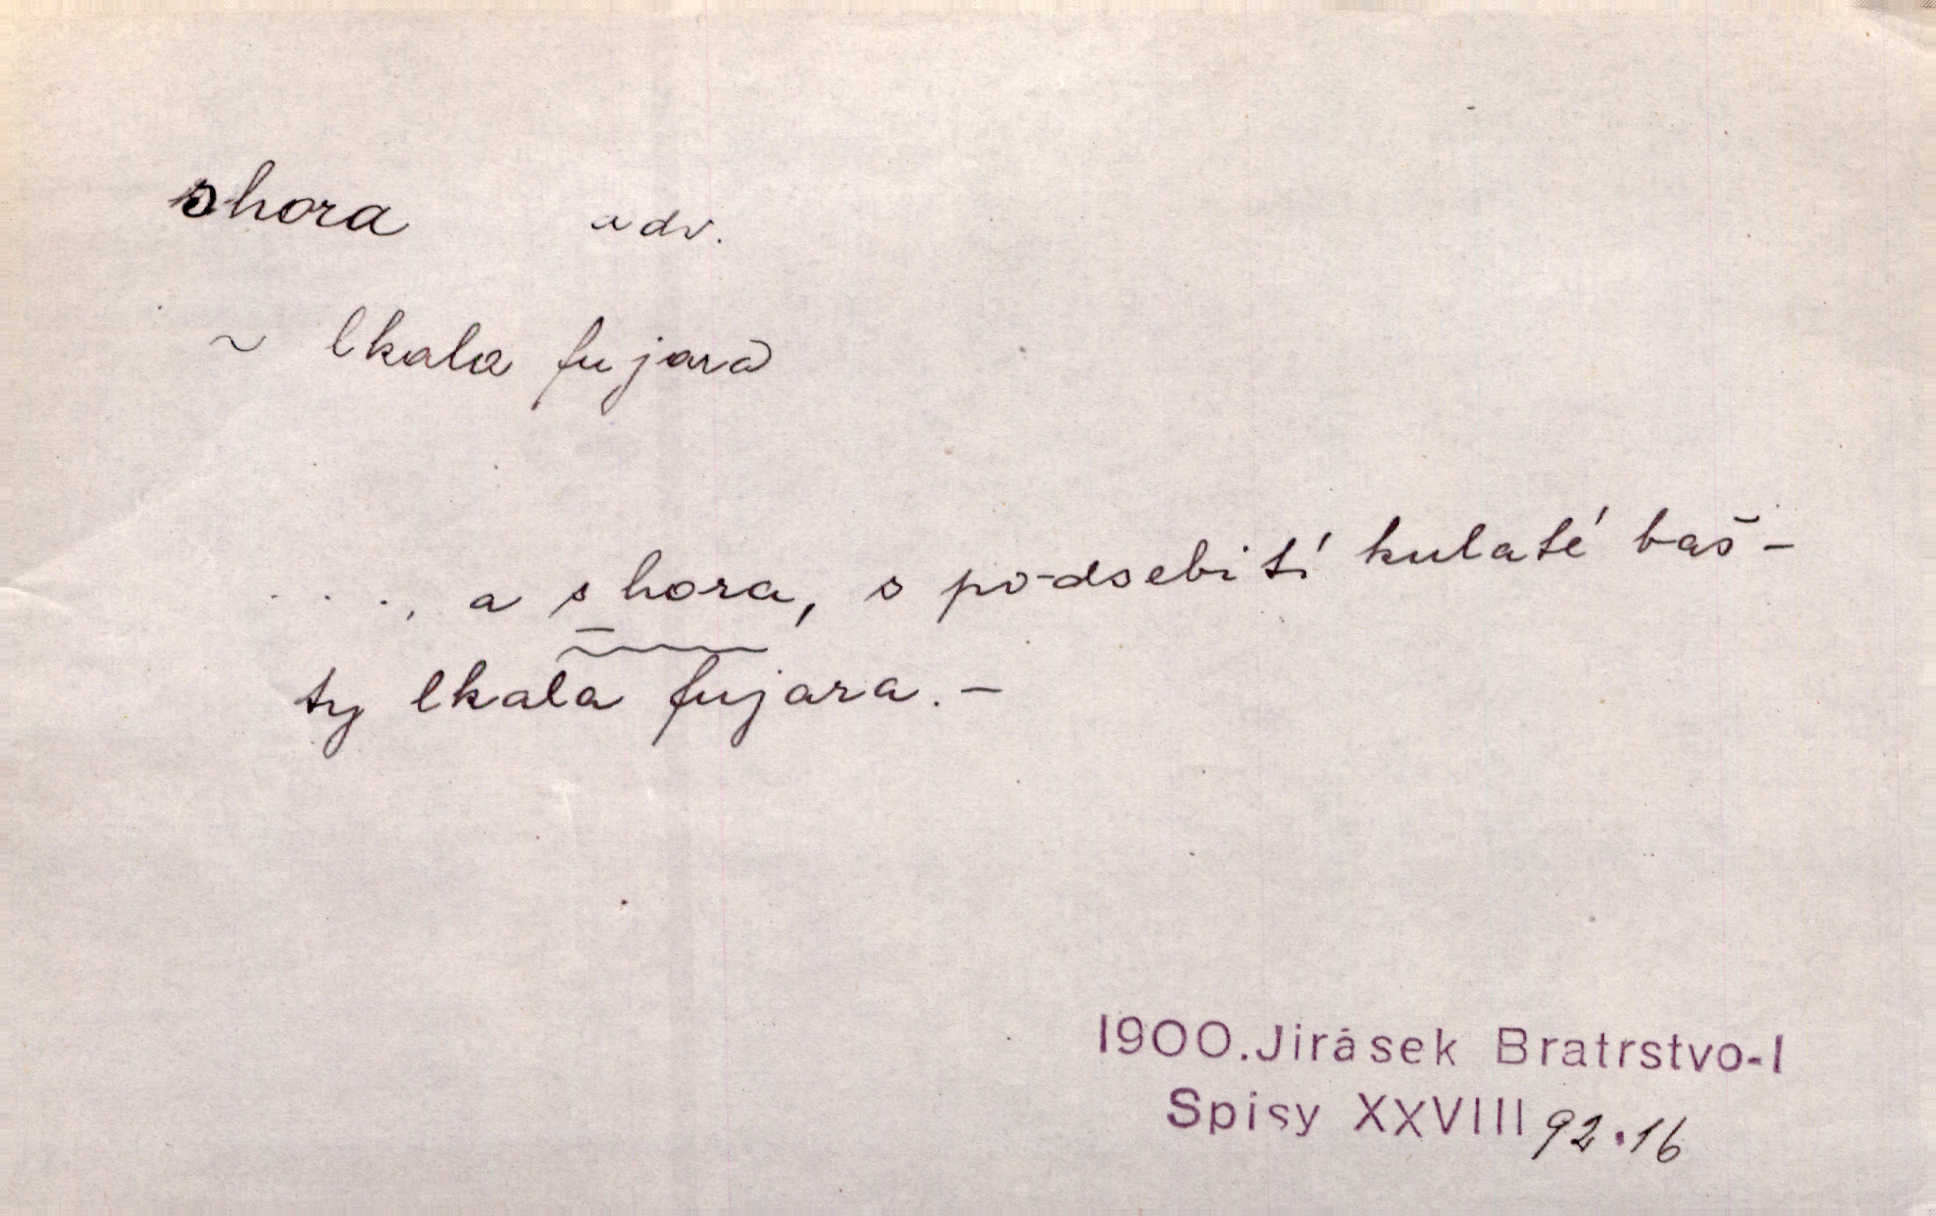 shora adv.
~ lkala fujara
...., a shora, s podsebití kulaté baš-
ty lkala fujara. -
1900. Jirásek Bratrstvo-I
Spisy XXVIII 92.16